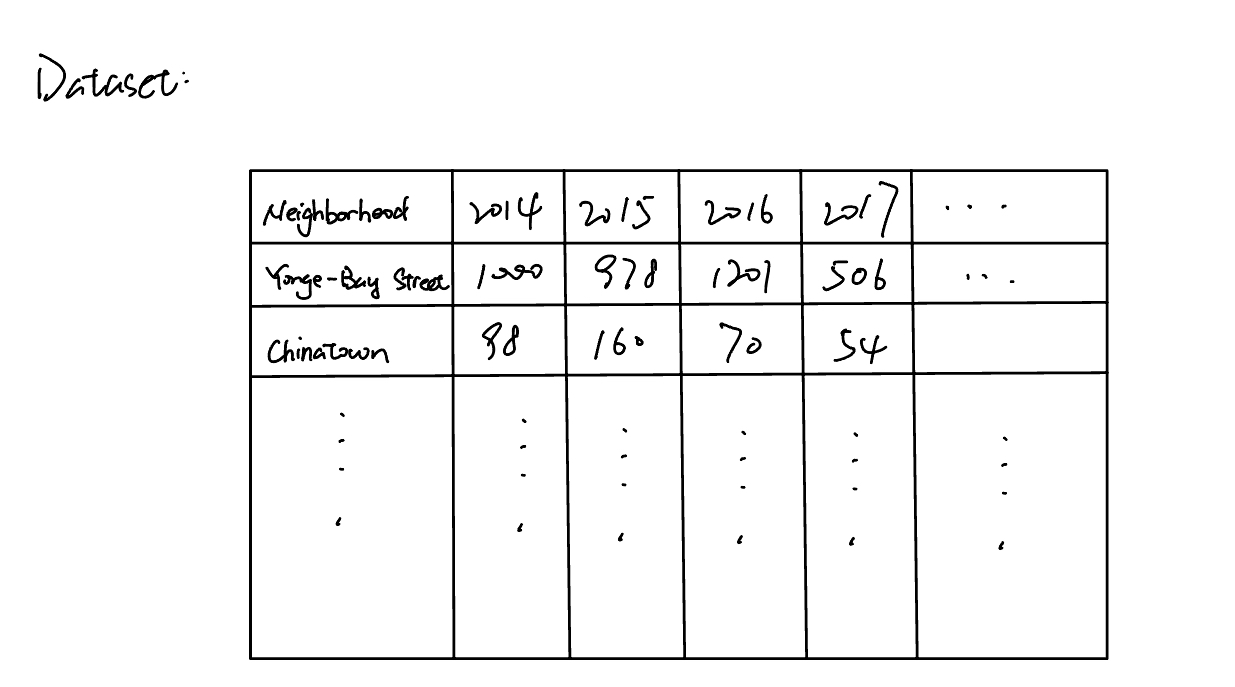 Dataset:
Neighborhood 2014 2015 2016 2017 ...
Yonge-Bay Street 1000 978 1201 506 ...
Chinatown 98 160 70 54